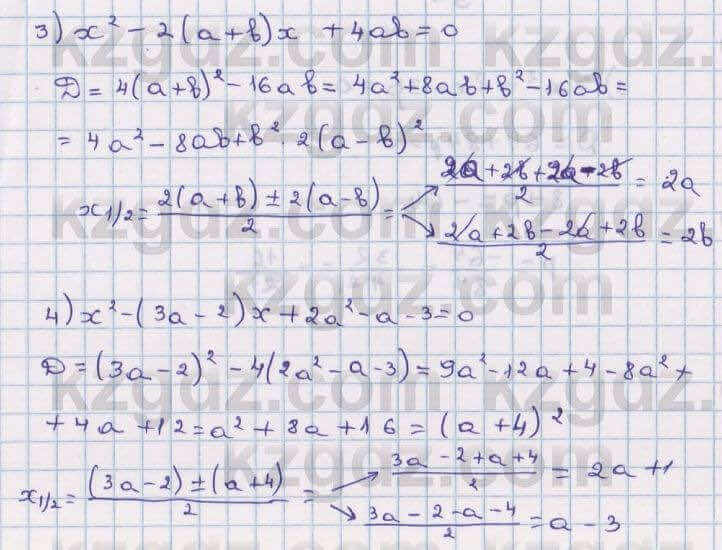 3) x² - 2(a+b)x + 4ab = 0
D = 4(a+b)² - 16ab = 4a² + 8ab + b² - 16ab =
= 4a² - 8ab + b² · 2(a-b)²
x1/2 = (2(a+b) ± 2(a-b))/2 = (2a+2b+2a-2b)/2 = 2a
(2a+2b-2a+2b)/2 = 2b
4) x² - (3a-2)x + 2a² - a - 3 = 0
D = (3a-2)² - 4(2a² - a - 3) = 9a² - 12a + 4 - 8a² +
+ 4a + 12 = a² + 8a + 16 = (a+4)²
x1/2 = ((3a-2) ± (a+4))/2 = (3a-2+a+4)/2 = 2a+1
(3a-2-a-4)/2 = a-3
kzgdz.com